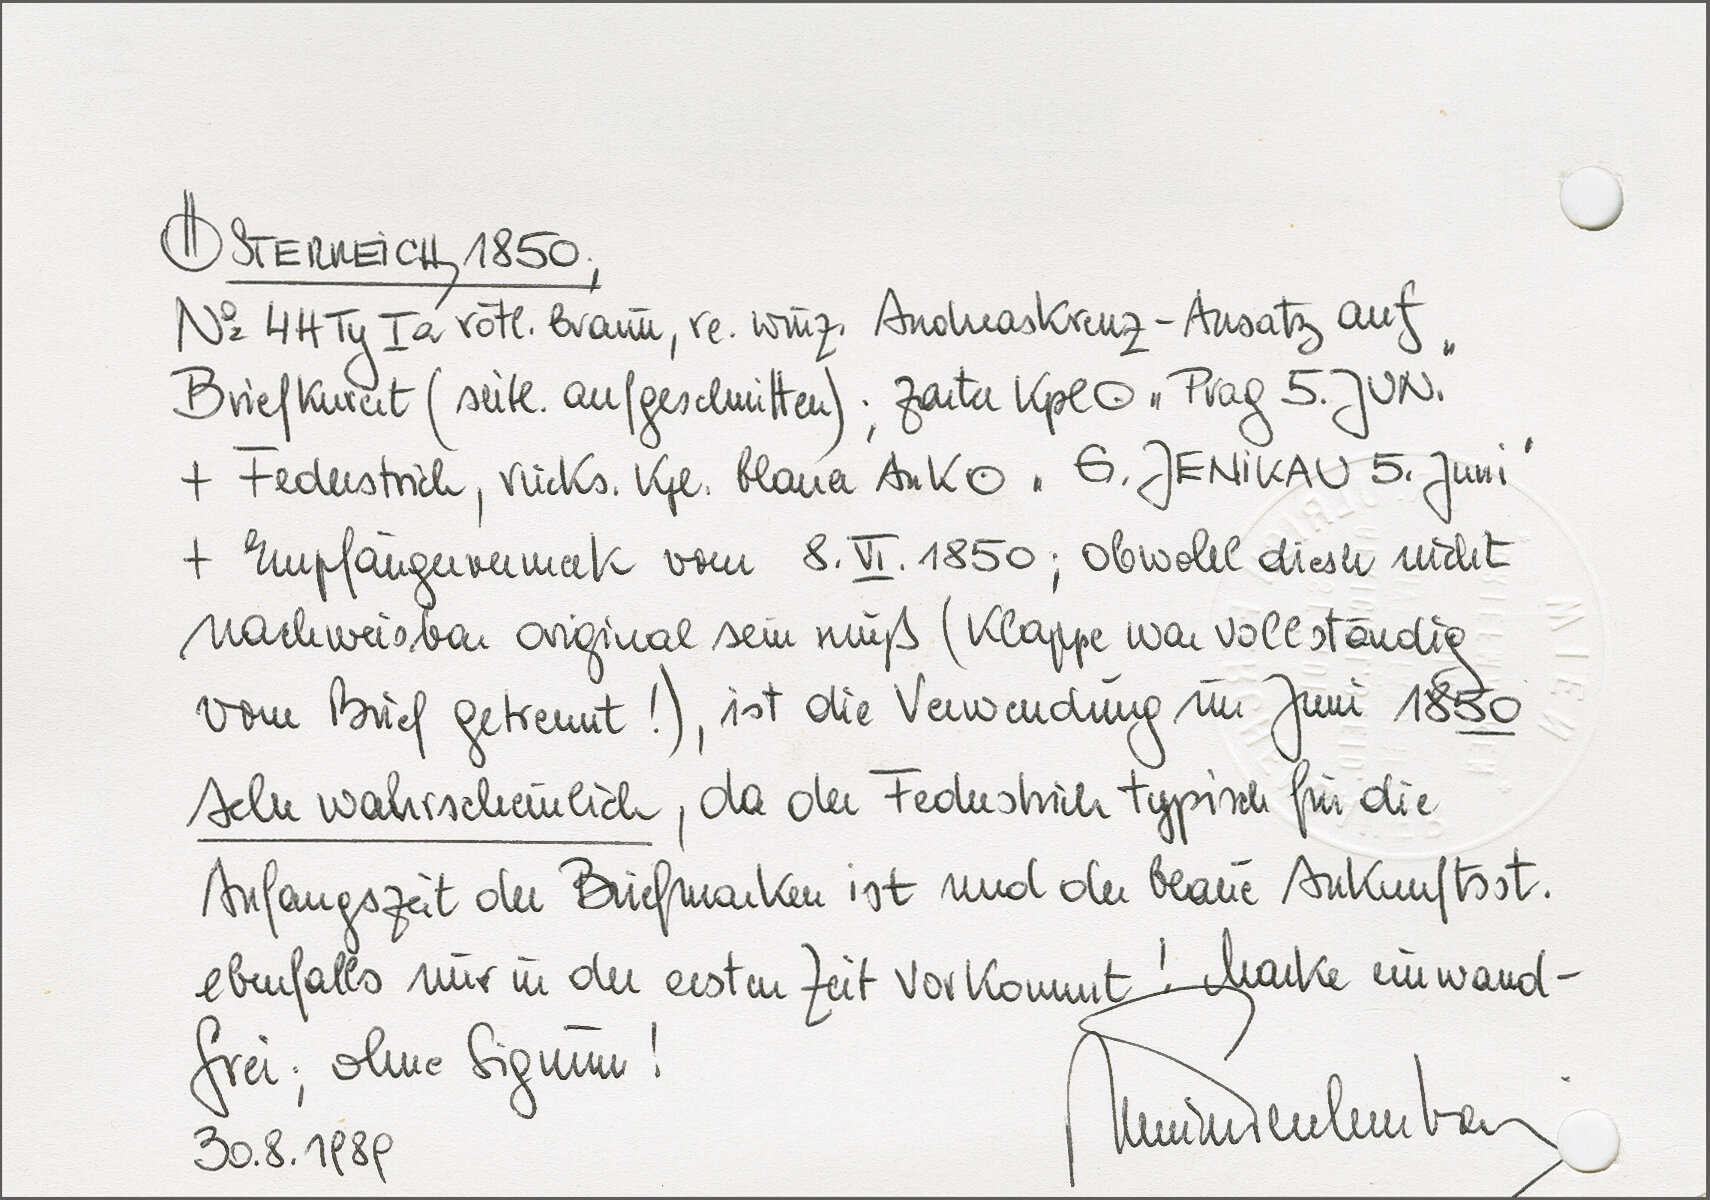 ÖSTERREICH, 1850;
No 4H Ty Ia rötl. braun, re. winz. Andreaskreuz-Ansatz auf
Briefkuvert (seitl. aufgeschnitten); zarter Kpl O „Prag 5. JUN."
+ Federstrich, rücks. Kpl. blauer AnkO „G. JENIKAU 5. Juni"
+ Empfängervermerk vom 8. VI. 1850; obwohl dieser nicht
nachweisbar original sein muß (Klappe war vollständig
vom Brief getrennt!), ist die Verwendung im Juni 1850
sehr wahrscheinlich, da der Federstrich typisch für die
Anfangszeit der Briefmarken ist und der blaue Ankunftsst.
ebenfalls nur in der ersten Zeit vorkommt! Marke einwand-
frei; ohne Signum!
30.8.1989
WIEN